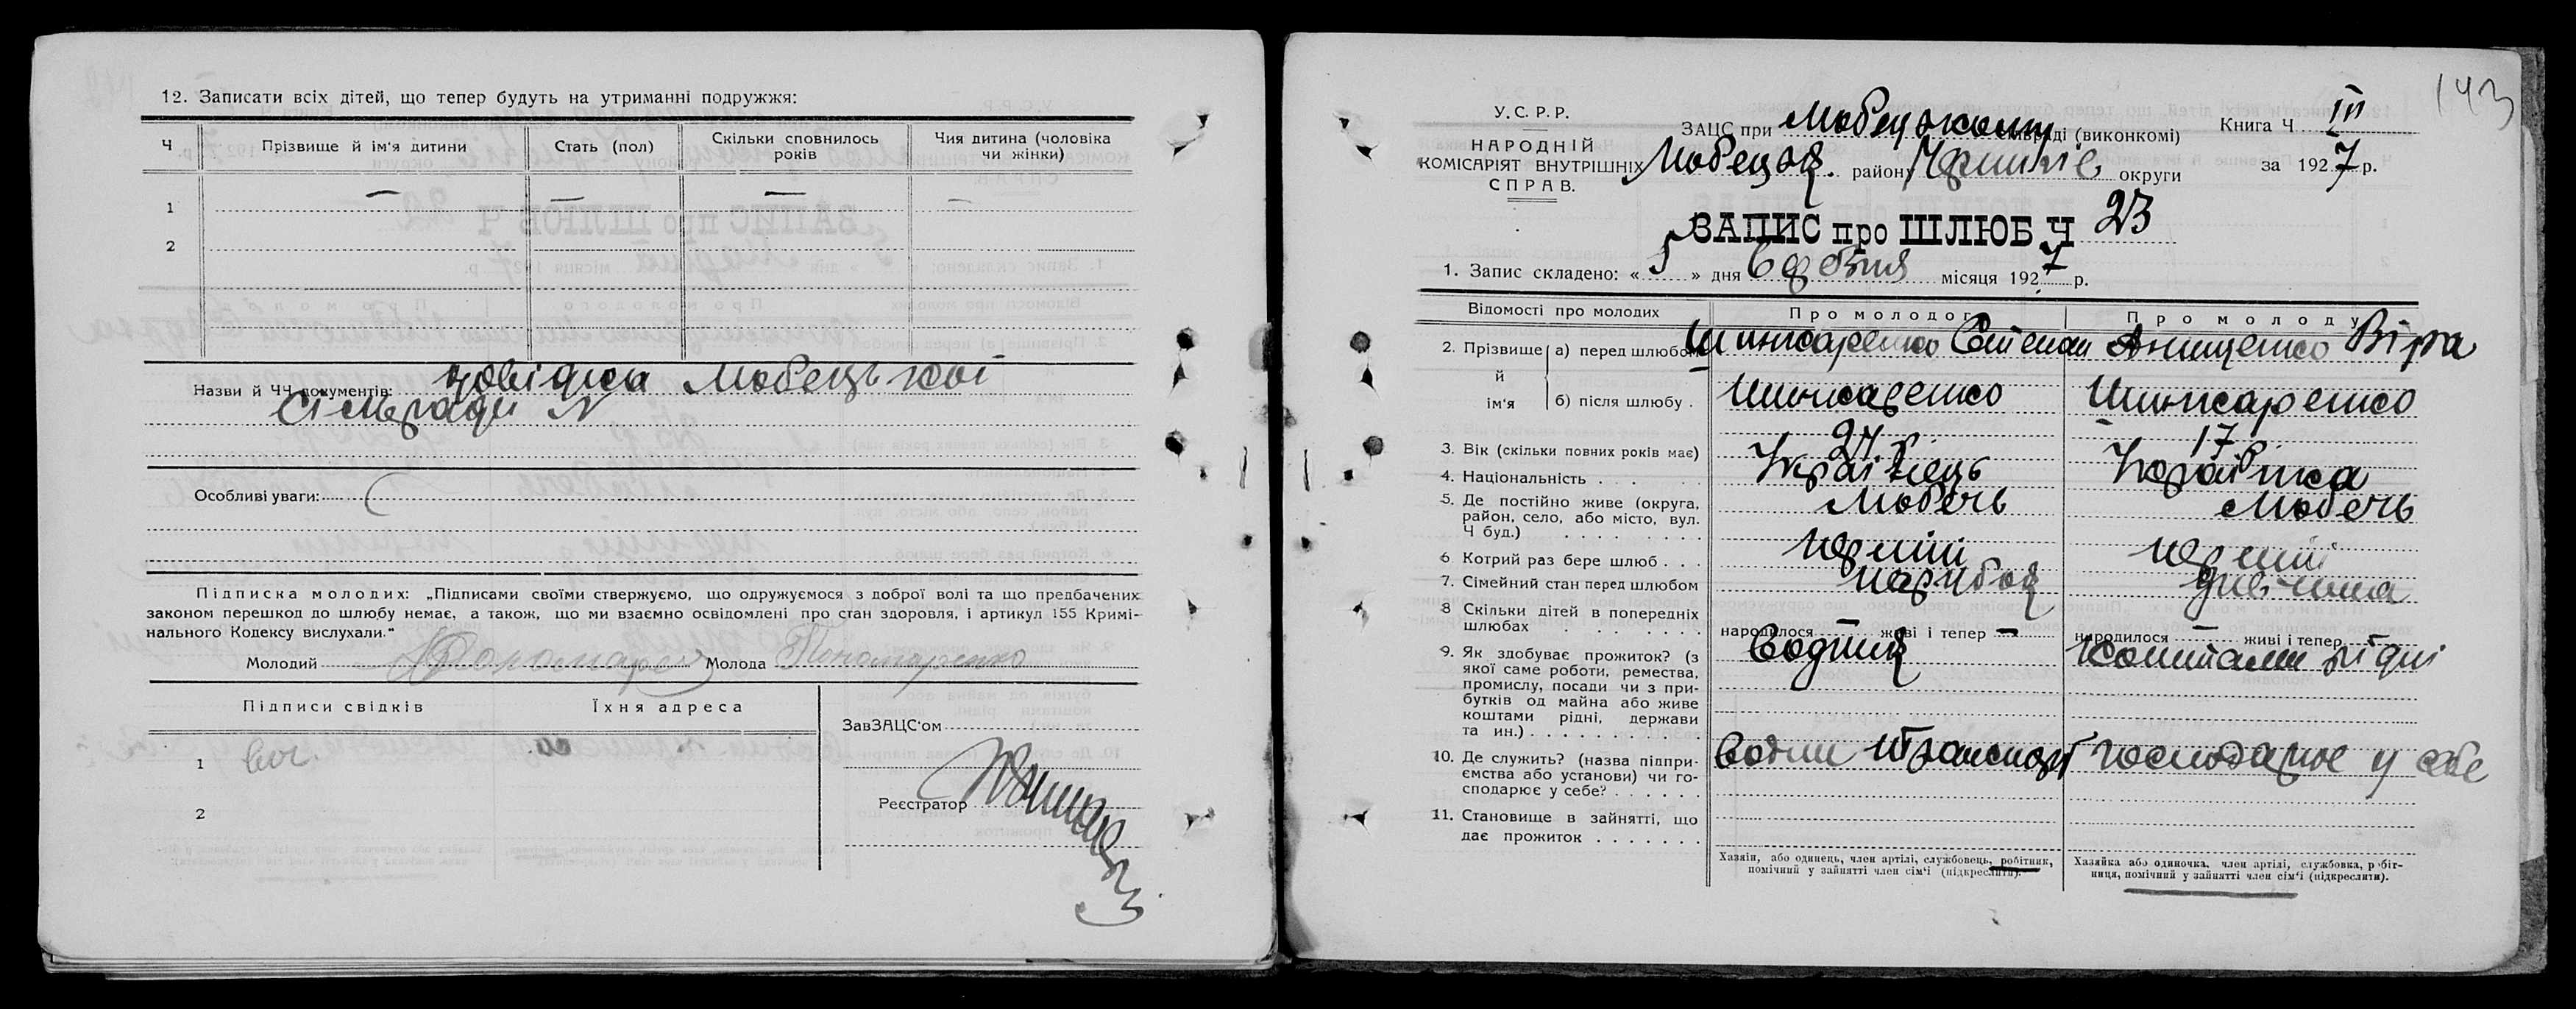 12. Записати всіх дітей, що тепер будуть на утриманні подружжя:
Ч Прізвище й ім'я дитини Стать (пол) Скільки сповнилось років Чия дитина (чоловіка чи жінки)
1 — — — —
2
Назви й ЧЧ документів: довідка Любецької
Сільради №
Особливі уваги:
Підписка молодих: „Підписами своїми ствержуємо, що одружуємося з доброї волі та що предбачених
законом перешкод до шлюбу немає, а також, що ми взаємно освідомлені про стан здоров'я, і артикул 155 Кримі-
нального Кодексу вислухали.“
Молодий Молода Пономаренко
Підписи свідків Їхня адреса
ЗавЗАЦС'ом
1
Реєстратор
2
143
У.С.Р.Р.
НАРОДНІЙ
КОМІСАРІЯТ ВНУТРІШНІХ
СПРАВ.
ЗАЦС при Любецькому сільраді (виконкомі) Книга Ч III
Любецьк. району Черниг. округи за 1927 р.
ЗАПИС про ШЛЮБ Ч 23
1. Запис складено: « 5 » дня місяця 1927 р.
Відомості про молодих Про молодого Про молоду
2. Прізвище й ім'я а) перед шлюбом Шинкаренко Степан Анищенко Віра
б) після шлюбу . Шинкаренко Шинкаренко
3. Вік (скільки повних років має) 24 р 17 р
4. Національність . . . Українець Українка
5. Де постійно живе (округа, Любеч Любеч
район, село, або місто, вул.
Ч буд.) . . . . . . . .
6 Котрий раз бере шлюб . . . перший перший
7. Сімейний стан перед шлюбом парубок дівчина
8 Скільки дітей в попередніх
шлюбах . . . . . . . народилося — живі і тепер — народилося — живі і тепер —
9. Як здобуває прожиток? (з Водник Коштами рідні
якої саме роботи, ремества,
промислу, посади чи з при-
бутків од майна або живе
коштами рідні, держави
та ин.) . . . . . . . .
10. Де служить? (назва підпри- Водний транспорт господарює у себе
ємства або установи) чи го-
сподарює у себе? . . . . .
11. Становище в зайнятті, що
дає прожиток . . . . . . .
Хазяїн, або одинець, член артілі, службовець, робітник,
помічний у зайнятті член сім'ї (підкреслити).
Хазяйка або одиночка, член артілі, службовка, робіт-
ниця, помічний у зайнятті член сім'ї (підкреслити).